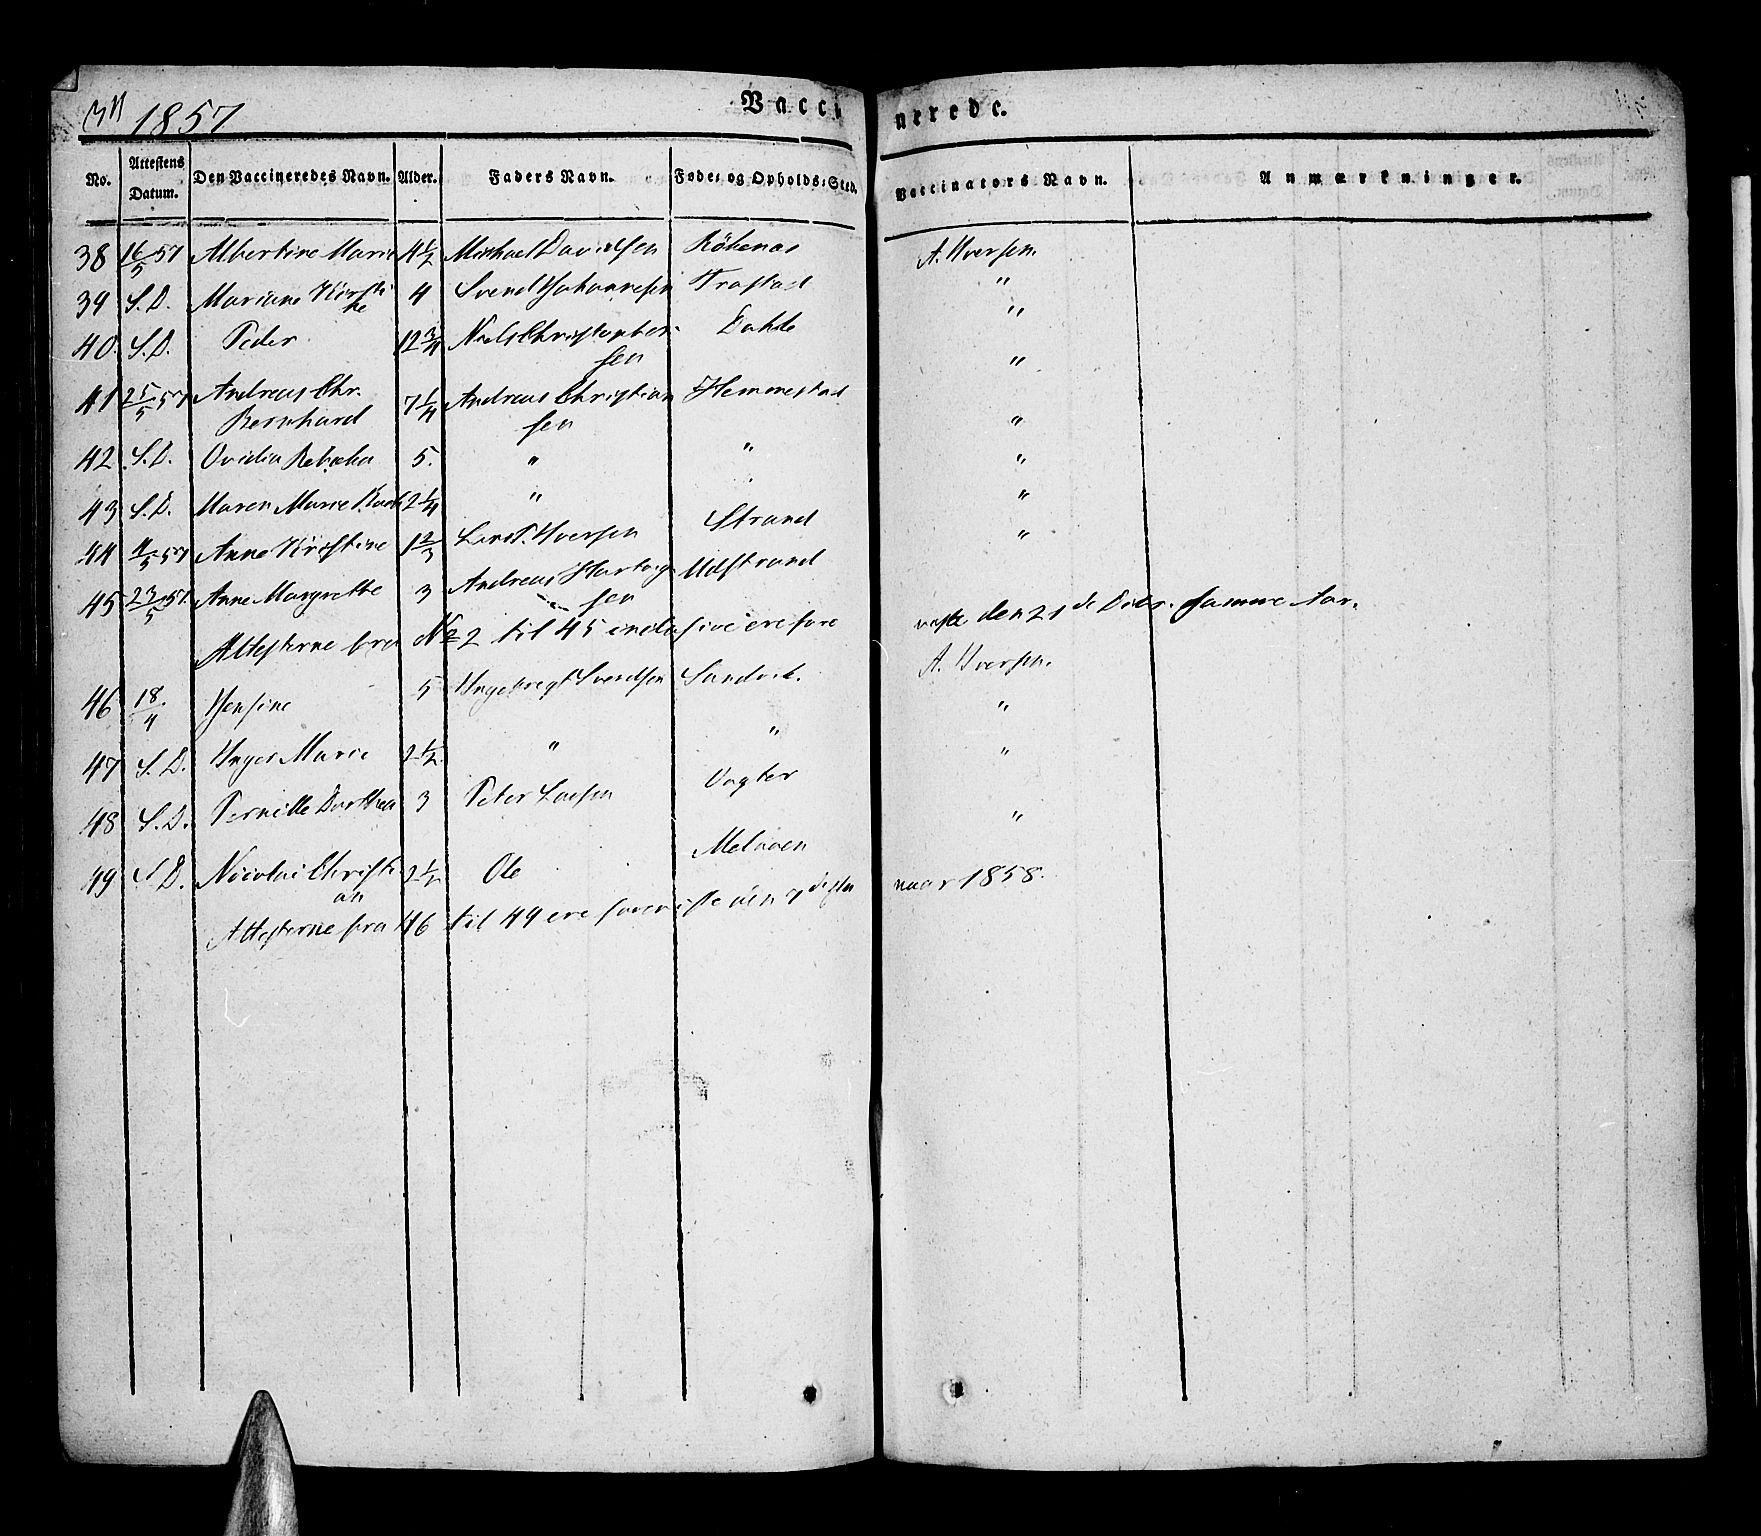 1857 Vaccinerede.
No. Attestens Datum. Den Vaccineredes Navn. Alder. Faders Navn. Føde- og Opholds-Sted. Vaccinators Navn. Anmærkninger.
38 16/5 57 Albertine Marie 4 1/2 Michael Davidsen A. Iversen.
39 S. D. Mariane Kirsti 4 Svend Johannesen Trastad "
ne "
40. S. D. Peder 12 3/4 Niels Christopher Dahle
sen "
41 25/5 57 Andreas Chr. 7 1/4 Andreas Christian Hemmestad
Bernhard sen "
42 S. D. Ovidia Rebecka 5. " " "
43 S. D. Maren Marie 2 1/4 " "
44 4/5 57 Anne Kirstine 1 2/3 Iversen Strand "
45 23/5 57 Anne Margrethe 3 Andreas Hartvig Udstrand
sen
Attesterne fra No 2 til 45 inclusive ere foreviste den 21de Decbr. samme Aar.
46 18/4 Jensine 5 Ingebregt Svendsen Sandvik. A. Iversen.
47 S. D. Inger Marie 2 1/2 " " "
48 S. D. Pernille Dorthea 3 Peter Vagter "
49 S. D. Nicolai Christi 2 1/2 Ole Melaaen "
an
Attesterne fra 46 til 49 ere foreviste den 7de Januar 1858.